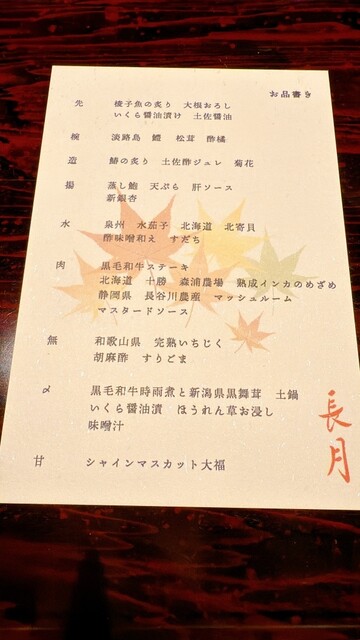 お品書き
先 梭子魚の炙り 大根おろし
いくら醤油漬け 土佐醤油
椀 淡路島 鱧 松茸 酢橘
造 鰆の炙り 土佐酢ジュレ 菊花
揚 蒸し鮑 天ぷら 肝ソース
新銀杏
水 泉州 水茄子 北海道 北寄貝
酢味噌和え すだち
肉 黒毛和牛ステーキ
北海道 十勝 森浦農場 熟成インカのめざめ
静岡県 長谷川農産 マッシュルーム
マスタードソース
無 和歌山県 完熟いちじく
胡麻酢 すりごま
〆 黒毛和牛時雨煮と新潟県黒舞茸 土鍋
いくら醤油漬 ほうれん草お浸し
味噌汁
甘 シャインマスカット大福
長月